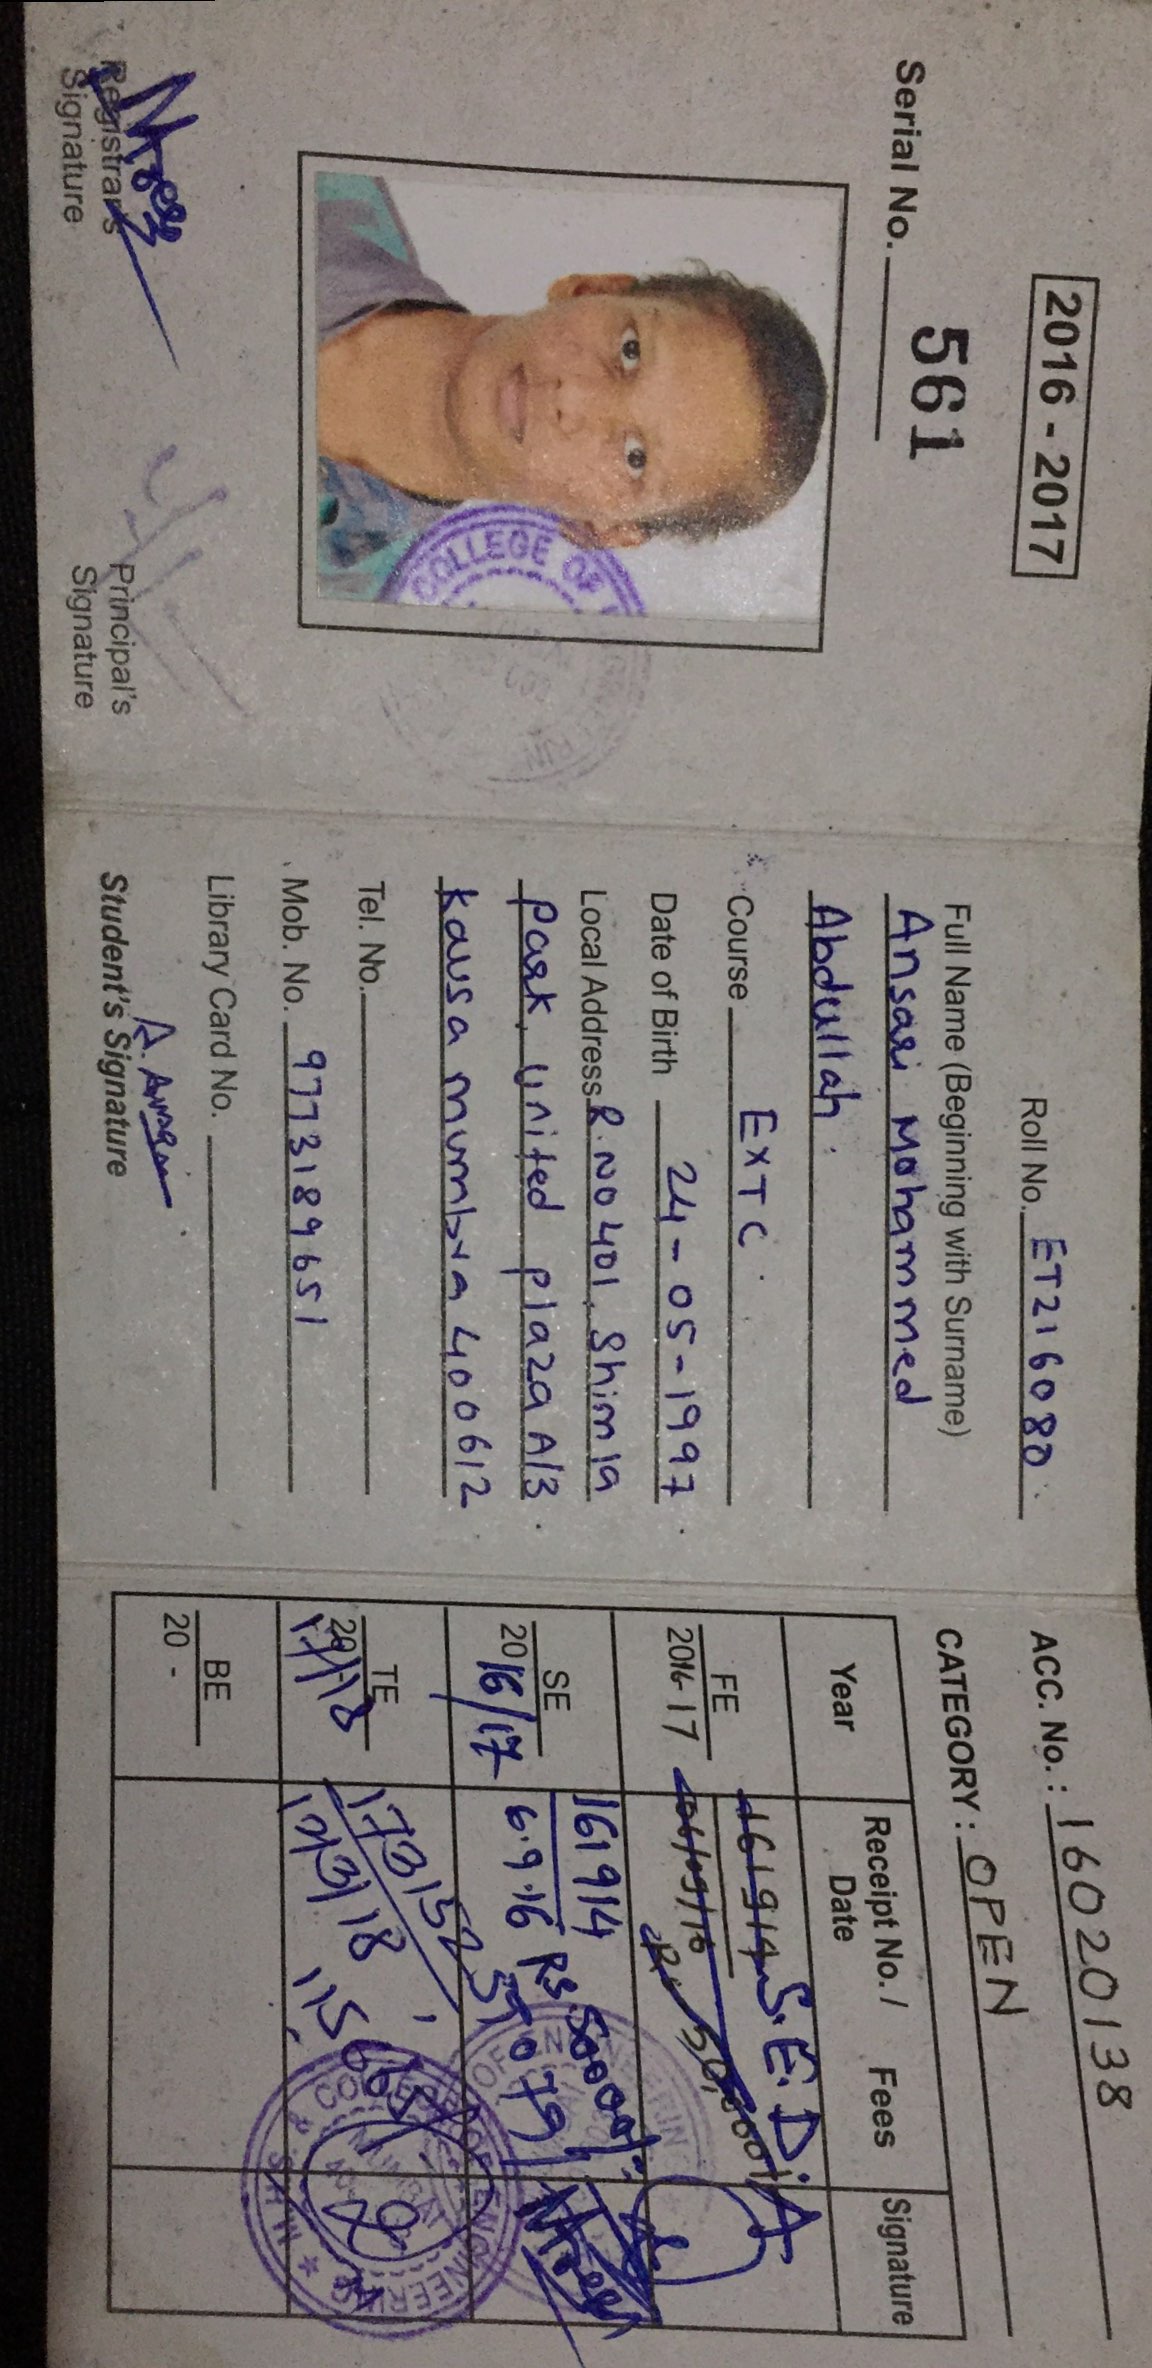 2016 - 2017
Serial No. 561
COLLEGE OF
Registrar's Signature
Principal's Signature
Roll No. ET216080
Full Name (Beginning with Surname)
Ansari Mohammed
Abdullah.
Course EXTC.
Date of Birth 24-05-1997.
Local Address R.NO 401, Shimla
Park, United plaza A/3.
Kausa mumbra 400612
Tel. No.
Mob. No. 9773189651
Library Card No.
A. Ansari
Student's Signature
ACC. No.: 16020138
CATEGORY: OPEN
Year Receipt No. / Date Fees Signature
FE 2016-17 161914 S.E.D.A
06/09/16 50,000/-
SE 2016/17 161914 Rs. 50000/-
6.9.16
TE 17/18
BE 20 -